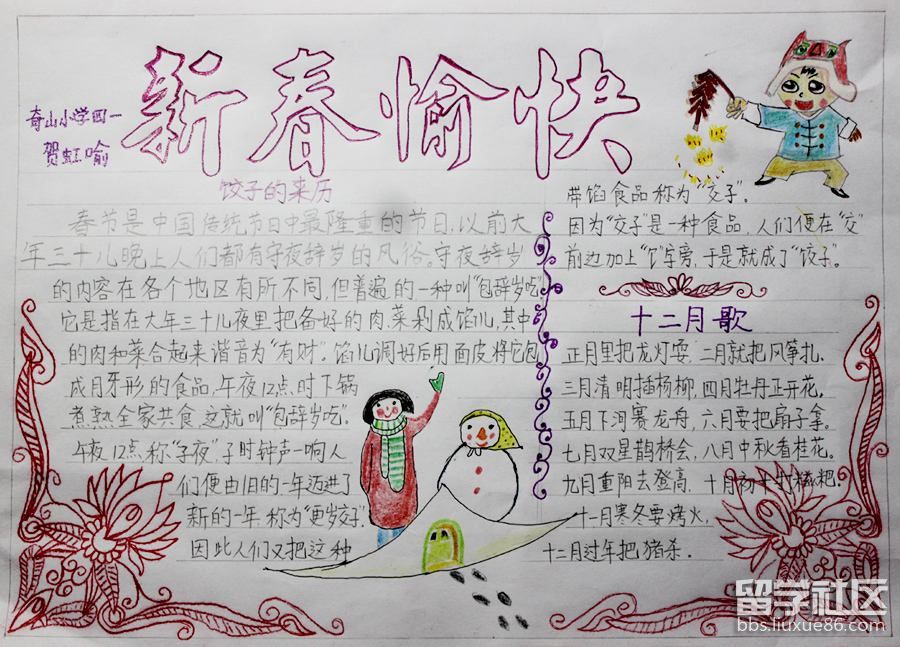 新春愉快
奇山小学四一
贺虹喻
饺子的来历
春节是中国传统节日中最隆重的节日,以前大
年三十儿晚上人们都有守夜辞岁的风俗。守夜辞岁
的内容在各个地区有所不同,但普遍的一种叫"包辞岁吃"
它是指在大年三十儿夜里把备好的肉、菜剁成馅儿,其中
的肉和菜合起来谐音为"有财"。馅儿调好后用面皮将它包
成月牙形的食品,午夜12点时下锅
煮熟全家共食,这就叫"包辞岁吃"。
午夜12点称"子夜"子时钟声一响人
们便由旧的一年迈进了
新的一年,称为"更岁交子"
因此人们又把这种
带馅食品称为"交子"。
因为"交子"是一种食品,人们便在"交"
前边加上"饣"字旁,于是就成了"饺子。
十二月歌
正月里把龙灯耍,二月就把风筝扎,
三月清明插杨柳,四月牡丹正开花,
五月下河赛龙舟,六月要把扇子拿。
七月双星鹊桥会,八月中秋香桂花。
九月重阳去登高,十月初十打糍粑。
十一月寒冬要烤火,
十二月过年把猪杀。
留学社区
bbs.liuxue86.com